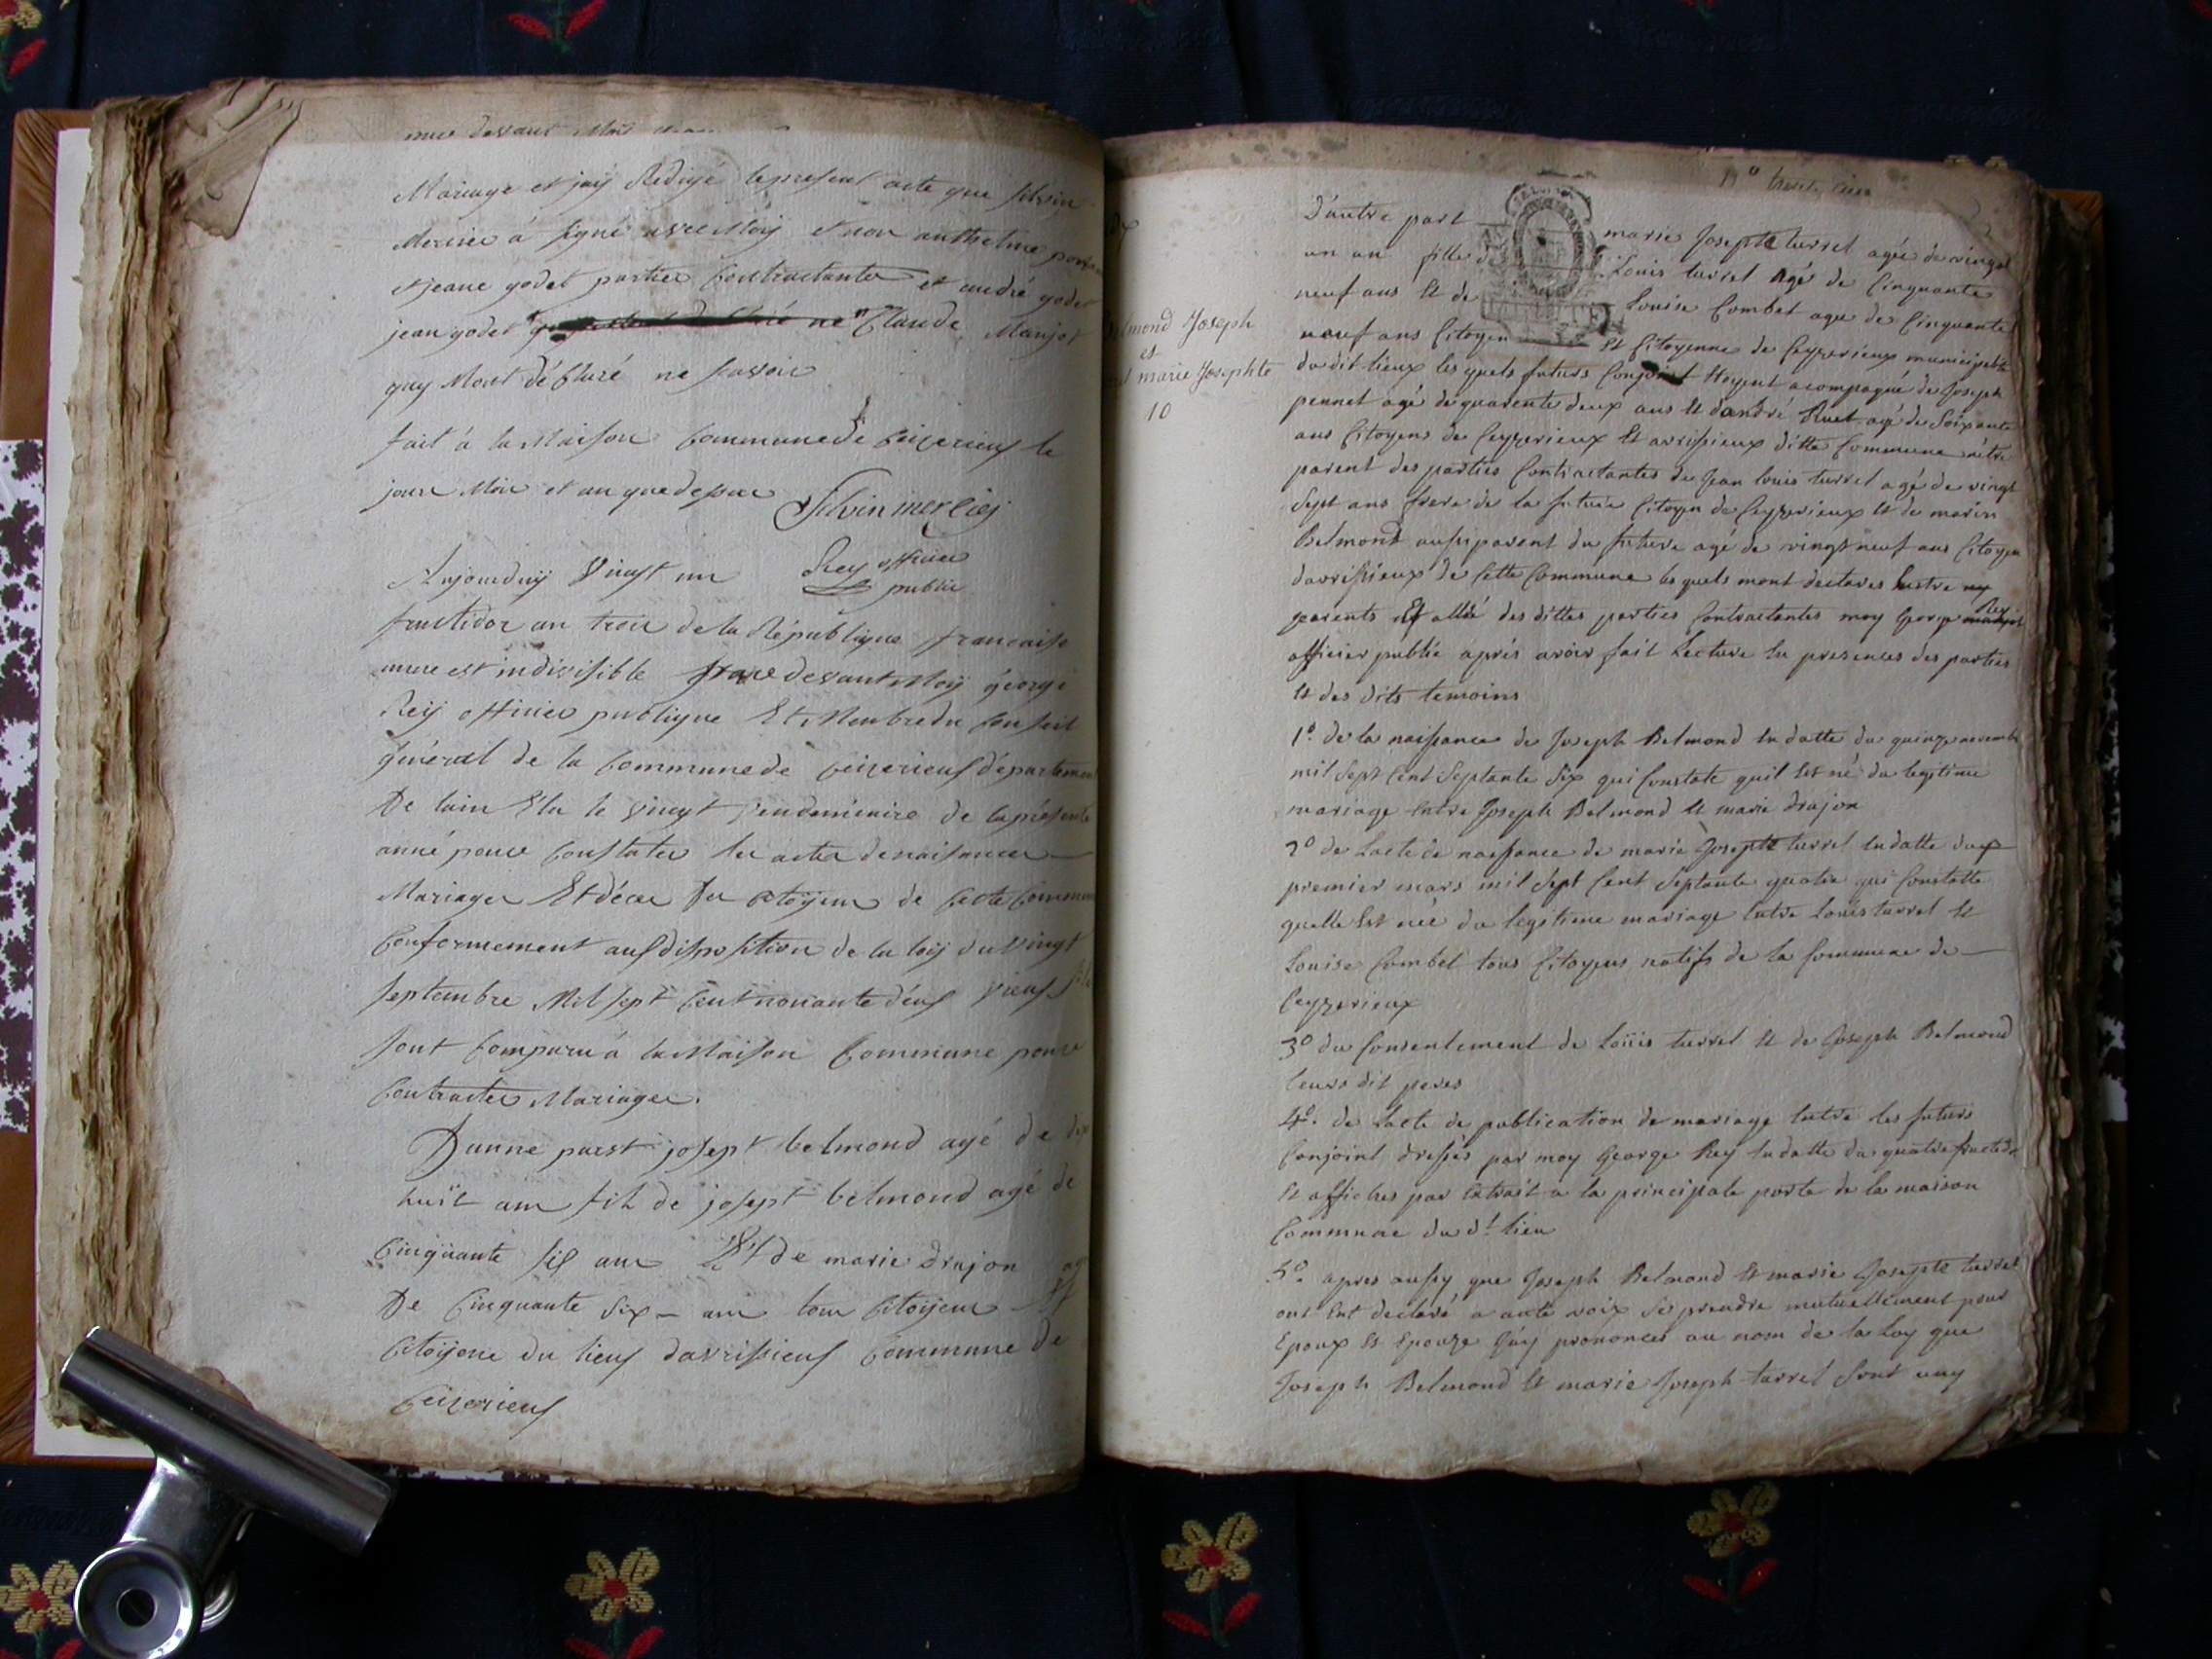 Mariage et jay Redigé lepresent acte que Silvin
Mercier á signé avec Moy et non anthelme
et jeane godet partier Contractante et andré godet
jean godet Claude Manjot
quy Mont déClaré ne savoir
fait á la Maison Commune de Ceizerieuf le
jour Moir et an que dessu
Silvin mercier
Rey officier
public
Aujourduij Vingt un
fructidor an troir de la République francaise
unne est indivisible devant Moij géorge
Reij officier puvlique Et Menbre du Conseil
général de la Commune de Ceizerieuf département
De lain Elu le Vingt Vendémiaire de la présente
anné pour Constater les acter de naisancer
Mariager Et décer Der citoijens de Cette Commune
Conformement auf disposition de la loij du Vingt
Septembre Mil sept Cent nonante déuf vieuf
sont Comparu á la Maison Commune pour
Contracter Mariager.
Dunne parst josept belmond agé de dix
huït ans fils de josept belmond agé de
Cinquante six ans Et de marie drujon
De Cinquante six - ans tous Citoijens Et
Citoijene du lieuf davrissieuf Commune de
Ceizerieuf
Belmond Joseph
et
marie Josephte
10
D'autre part marie Josephte turrel agée de vingt
un an fille de Louis turrel agé de Cinquante
neuf ans et de Louise Combet agee de Cinquante
neuf ans Citoyen et Citoyenne de Ceyzerieux municipalité
du dit lieux les quels futurs Conjoint étoyent acompagné de Joseph
pennet agé de quarente deux ans et dandré Ruet agé de Soixante
ans Citoyens de Ceyzerieux et avrissieux ditte Commune
parent des parties Contractantes de Jean louis turrel agé de vingt
Sept ans frere de la future Citoyen de Ceyzerieux et de marin
Belmond aussi parent du future agé de vingt neuf ans Citoyen
davrissieux de Cette Commune les quels mont declarés Entre
parents et allié des dittes parties Contractantes moy George Rey
officier publié aprés avoir fait Lecture En presences des parties
et des dits temoins
1º. de la naissance de Joseph Belmond En datte du quinze novembre
mil Sept Cent Septante Six qui Constate quil Est né du legitime
mariage Entre Joseph Belmond et marie drujon
2º de Lacte de naissance de marie Josephte turrel En datte du
premier mars mil Sept Cent Septante quatre qui Constatte
quelle Est née du legitime mariage Entre Louis turrel et
Louise Combet tous Citoyens natifs de la Commune de
Ceyzerieux
3º du Consentement de Loüis turrel et de Joseph Belmond
leurs dit peres
4º. de Lacte de publication de mariage Entre les futurs
Conjoint dressés par moy George Rey En datte du quatre fructidor
et affiches par Extrait a la principale porte de la maison
Commune du dt lieu
5º. apres aussy que Joseph Belmond et marie Josephte turrel
ont Ent declaré a aute voix Se prendre mutuellement pour
Epoux et Epouze J'áy prononcés au nom de la Loy que
Joseph Belmond et marie Joseph turrel Sont uny